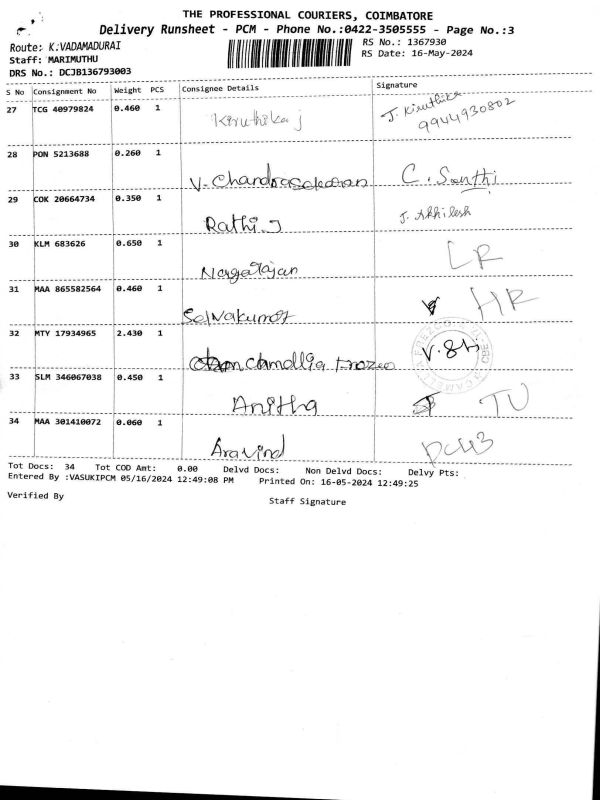 THE PROFESSIONAL COURIERS, COIMBATORE
Delivery Runsheet - PCM - Phone No.:0422-3505555 - Page No.:3
Route: K.VADAMADURAI
RS No.: 1367930
Staff: MARIMUTHU
RS Date: 16-May-2024
DRS No.: DCJB136793003
S No Consignment No Weight PCS Consignee Details Signature
27 TCG 40979824 0.460 1 Kiruthika j J. Kiruthika
9944930802
28 PON 5213688 0.260 1
V. Chandrasekaran C. Santhi
29 COK 20664734 0.350 1
Rathi.J J. Akhilesh
30 KLM 683626 0.650 1
Nagarajan LR
31 MAA 865582564 0.460 1
Selvakumar HR
32 MTY 17934965 2.430 1
Camellia Frozeo
33 SLM 346067038 0.450 1
Anitha TU
34 MAA 301410072 0.060 1
Aravind
Tot Docs: 34 Tot COD Amt: 0.00 Delvd Docs: Non Delvd Docs: Delvy Pts:
Entered By :VASUKIPCM 05/16/2024 12:49:08 PM Printed On: 16-05-2024 12:49:25
Verified By Staff Signature